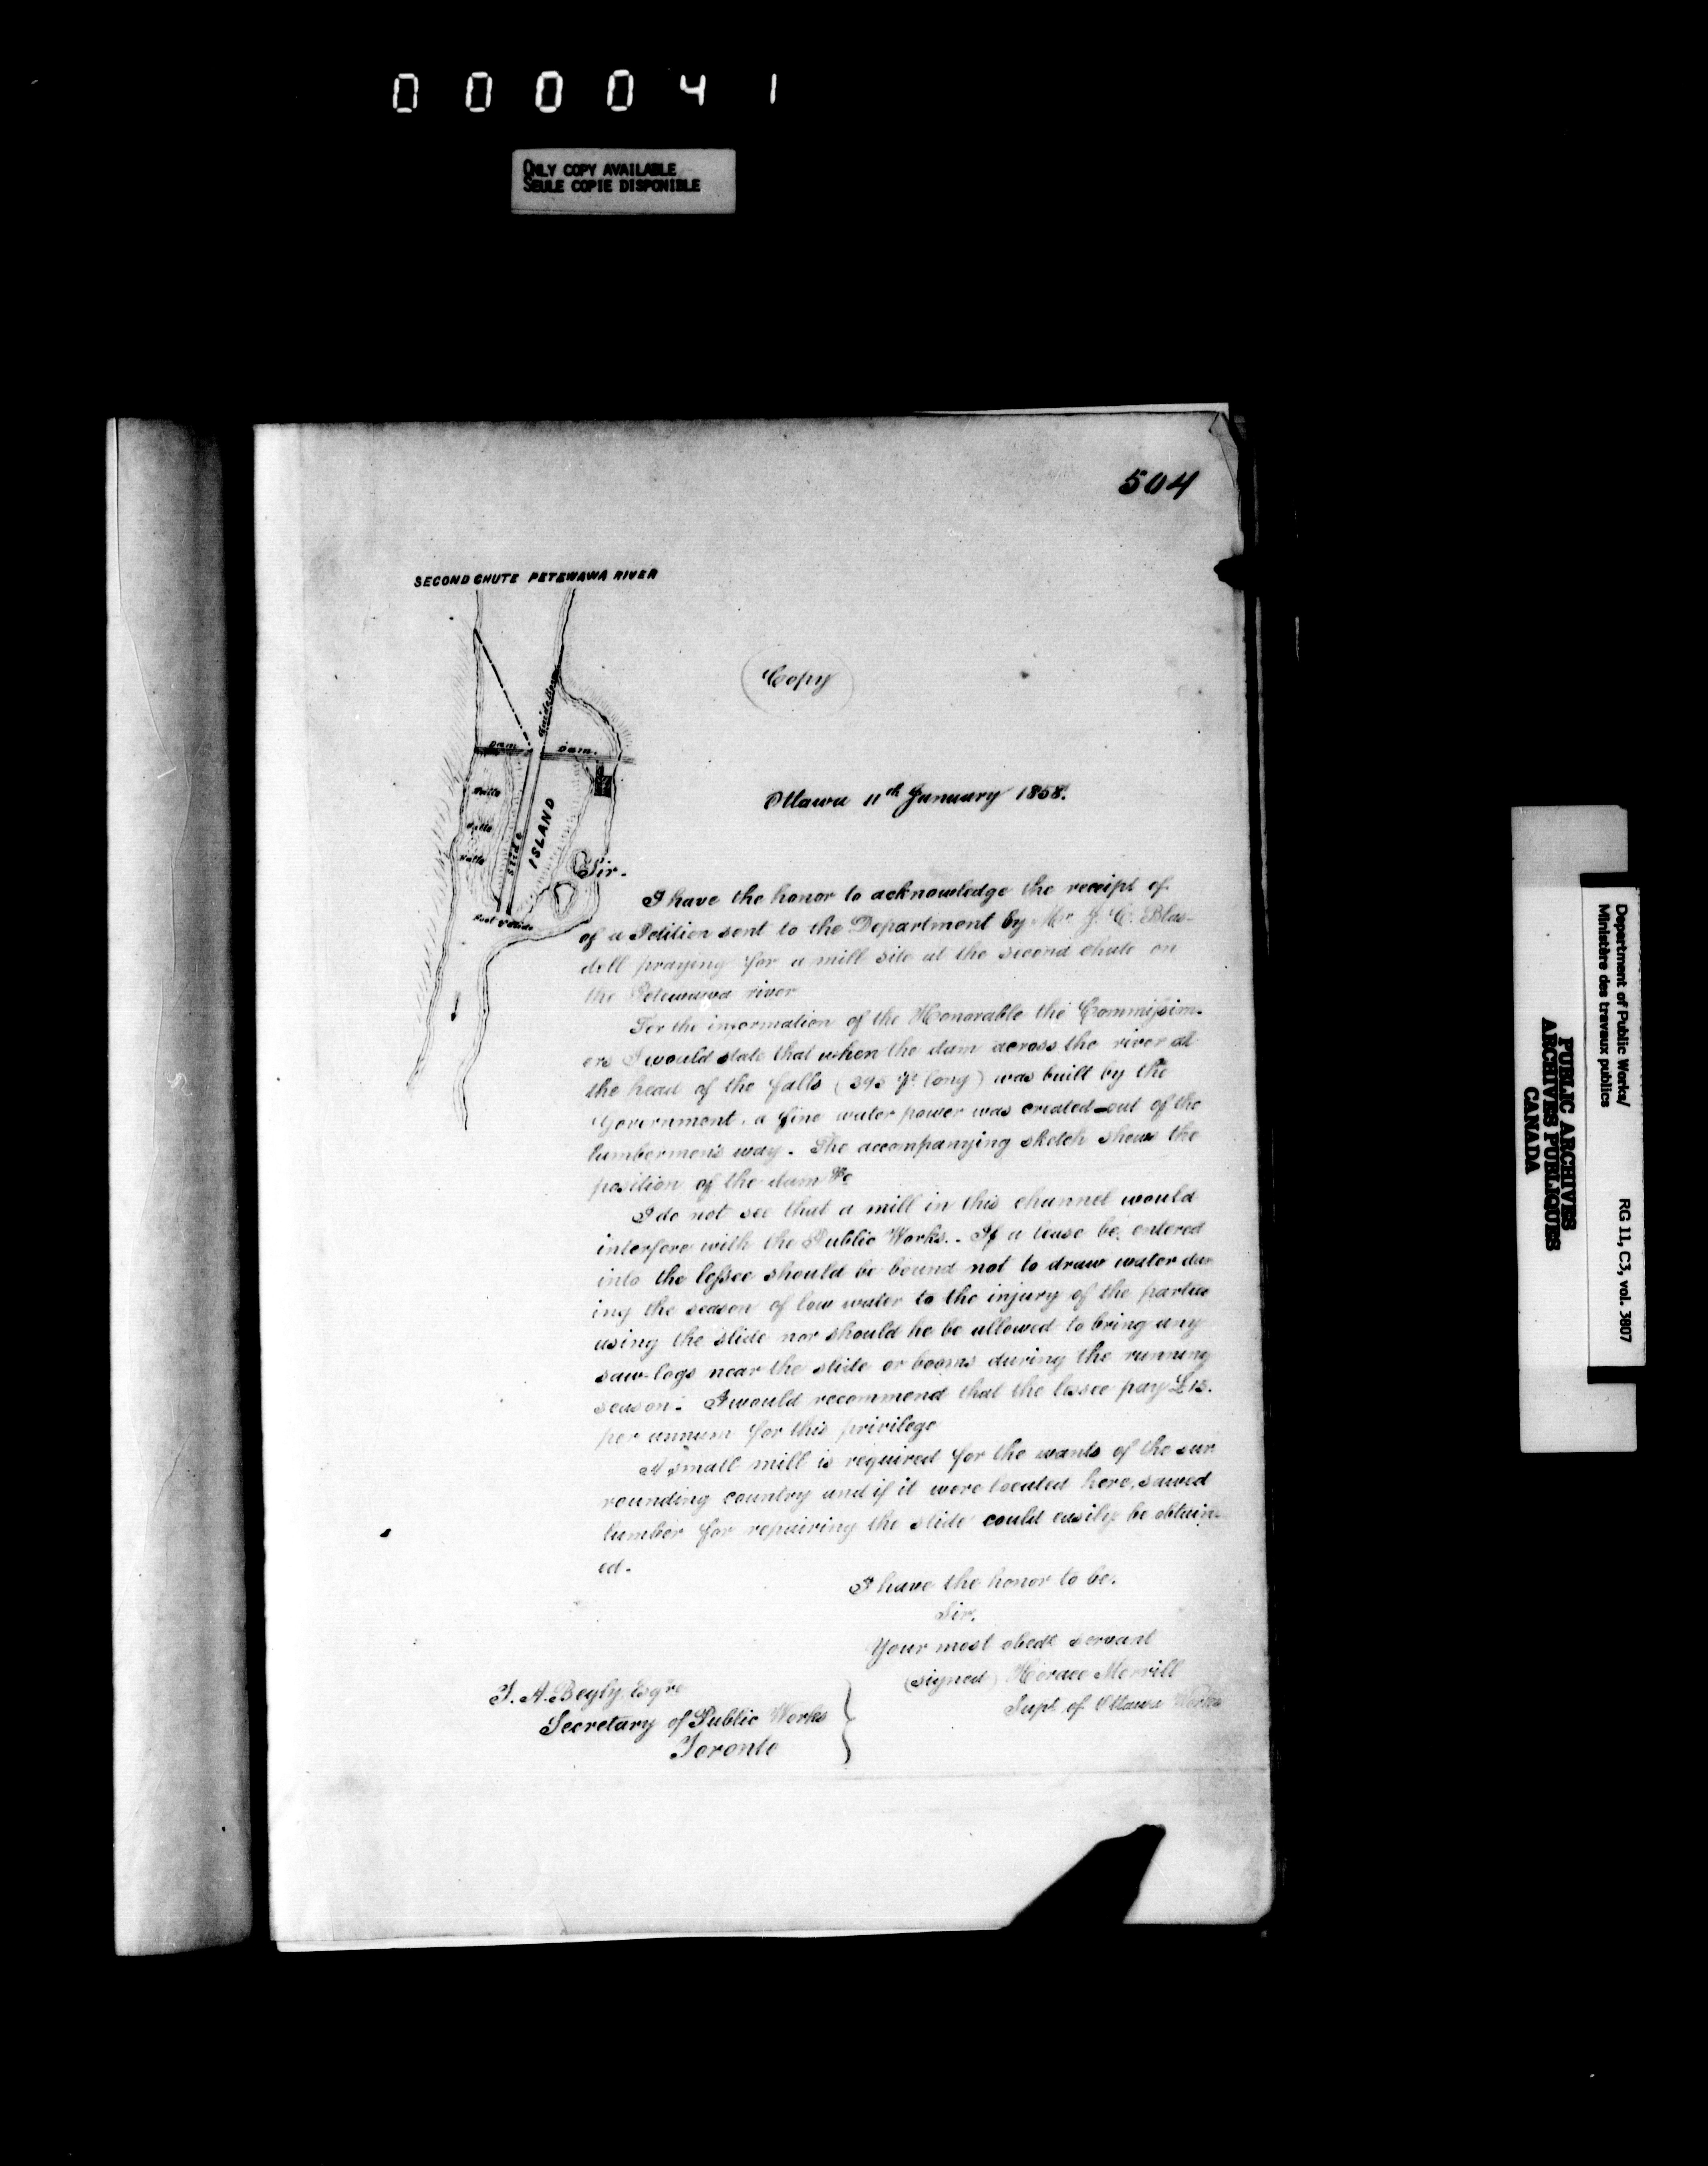 0 0 0 0 4 1
ONLY COPY AVAILABLE
SEULE COPIE DISPONIBLE
504
SECOND CHUTE PETEWAWA RIVER
Guide Boom
Dam.
Dam.
Falls
Falls
Falls
Slide
ISLAND
Foot of Slide
Copy
Ottawa 11th January 1858.
Sir.
I have the honor to acknowledge the receipt of
of a Petition sent to the Department by Mr. J. C. Blas-
dell praying for a mill site at the second chute on
the Petewawa river
For the information of the Honorable the Commission-
ers I would state that when the dam across the river at
the head of the falls (395 ft. long) was built by the
Government, a fine water power was created out of the
lumbermen's way. The accompanying sketch shows the
position of the dam &c
I do not see that a mill in this channel would
interfere with the Public Works. - If a lease be entered
into the lessee should be bound not to draw water dur
ing the season of low water to the injury of the parties
using the slide nor should he be allowed to bring any
saw-logs near the slide or booms during the running
season. I would recommend that the lessee pay £15.
per annum for this privilege
A small mill is required for the wants of the sur
rounding country and if it were located here, sawed
lumber for repairing the slide could easily be obtain-
ed.
I have the honor to be.
Sir.
Your most obedt servant
(signed) Horace Merrill
Supt of Ottawa Works
T. A. Begly, Esqre
Secretary of Public Works
Toronto
Department of Public Works/
Ministère des travaux publics
RG 11, C3, vol. 3807
PUBLIC ARCHIVES
ARCHIVES PUBLIQUES
CANADA